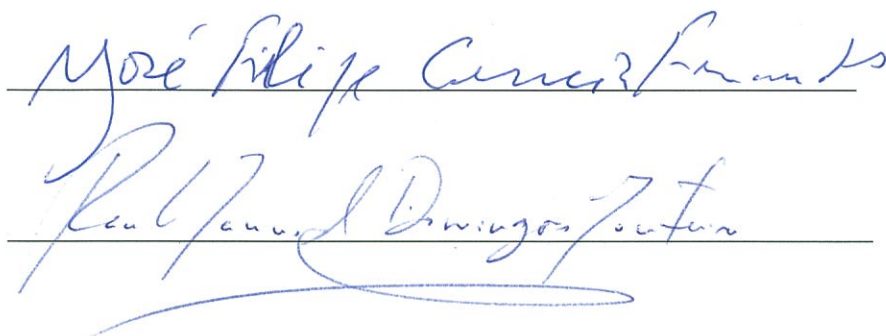 José Filipe Correia Fernandes
Raul Manuel Domingos Monteiro